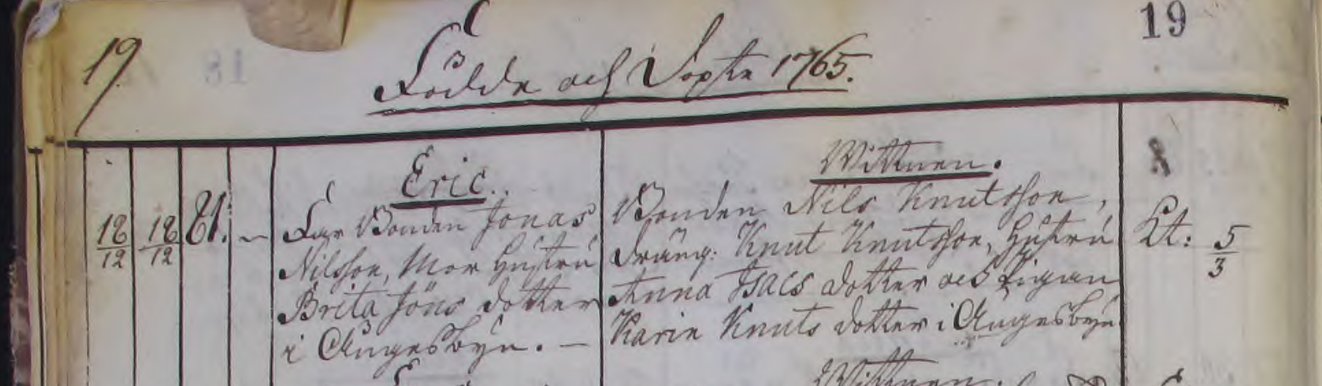 19 19
Födde och Döpte 1765.
Eric.
18/12 18/12 U. – Far Bonden Jonas
Nilsson, Mor Hustru
Brita Jöns dotter
i Ångesbyn. –
Wittnen.
Bonden Nils Knutsson,
Dräng: Knut Knutsson, Hustru
Anna Isacs dotter och Pigan
Karin Knuts dotter i Ångesbyn
Kt: 5/3
Wittnen.